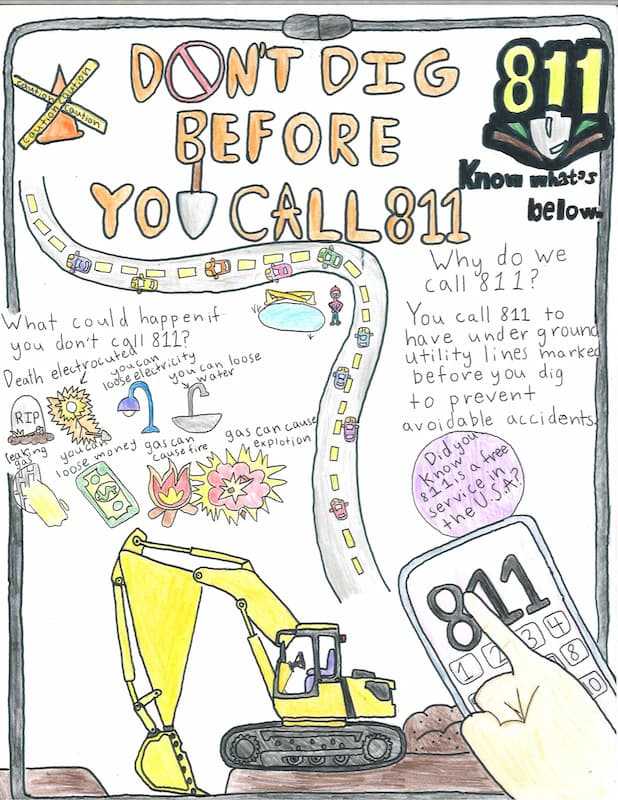 DON'T DIG
BEFORE
YOU CALL 811
caution caution
caution caution
811
Know what's
below.
Why do we
call 811?
You call 811 to
have underground
utility lines marked
before you dig
to prevent
avoidable accidents.
What could happen if
you don't call 811?
Death
electrocuted
you can
loose electricity
you can loose
water
RIP
leaking
gas
you can
loose money
gas can
cause fire
gas can cause
explotion
Did you
know
811 is a free
service in
the U.S.A?
811
1 2 3 4
8
0